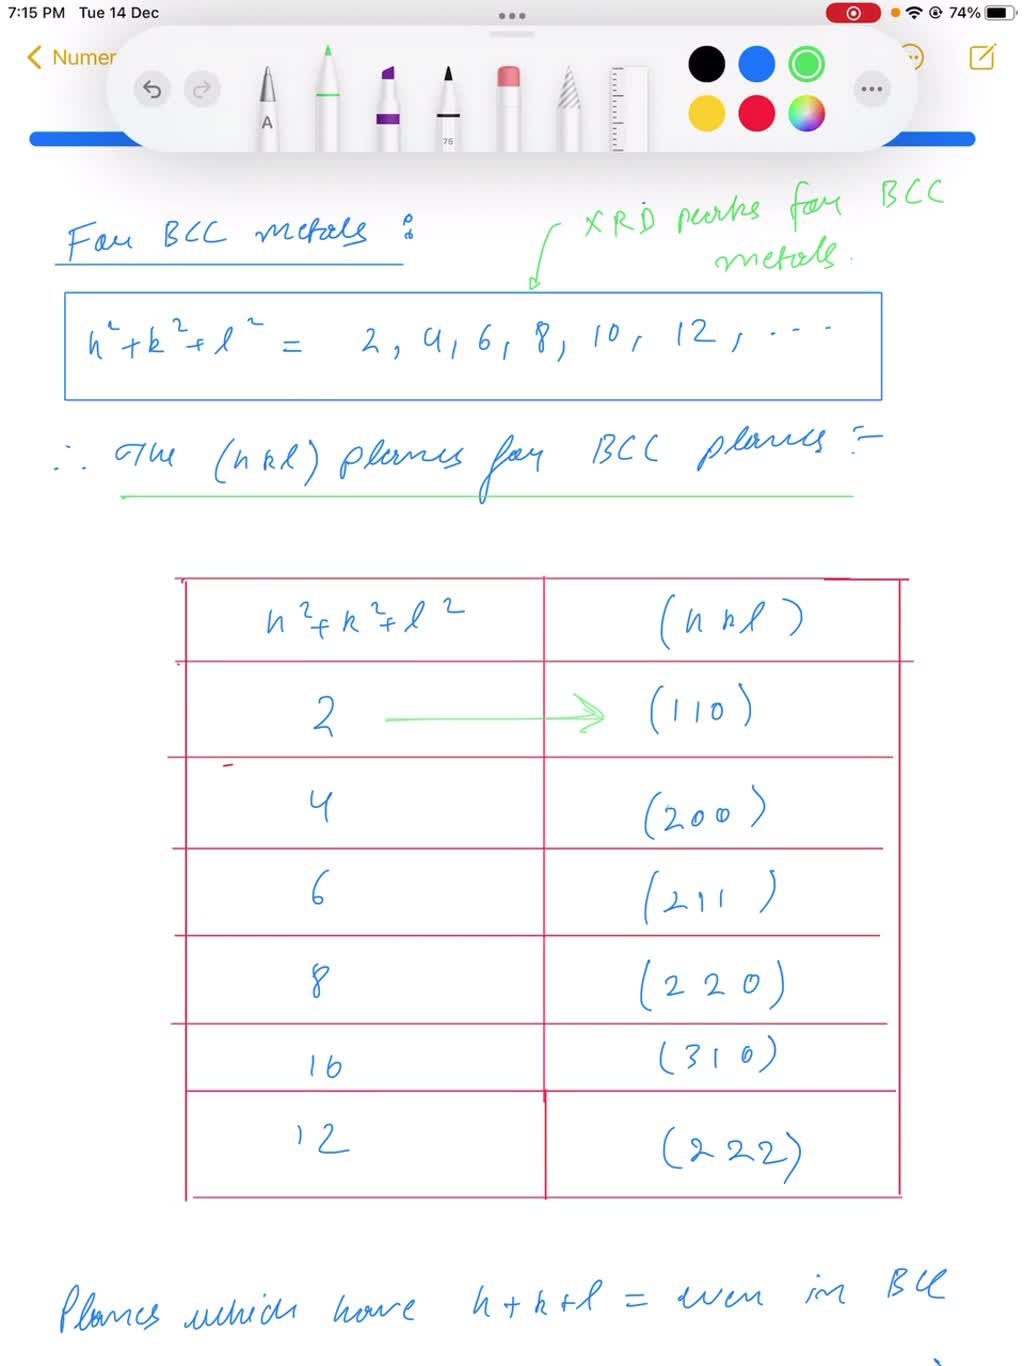 7:15 PM Tue 14 Dec 74%
Numer
A 75
For BCC metals :
XRD peaks for BCC
metals.
h²+k²+l² = 2, 4, 6, 8, 10, 12, ....
∴ The (hkl) planes for BCC planes :-
h²+k²+l² (hkl)
2 → (110)
4 (200)
6 (211)
8 (220)
10 (310)
12 (222)
Planes which have h+k+l = even in BCC